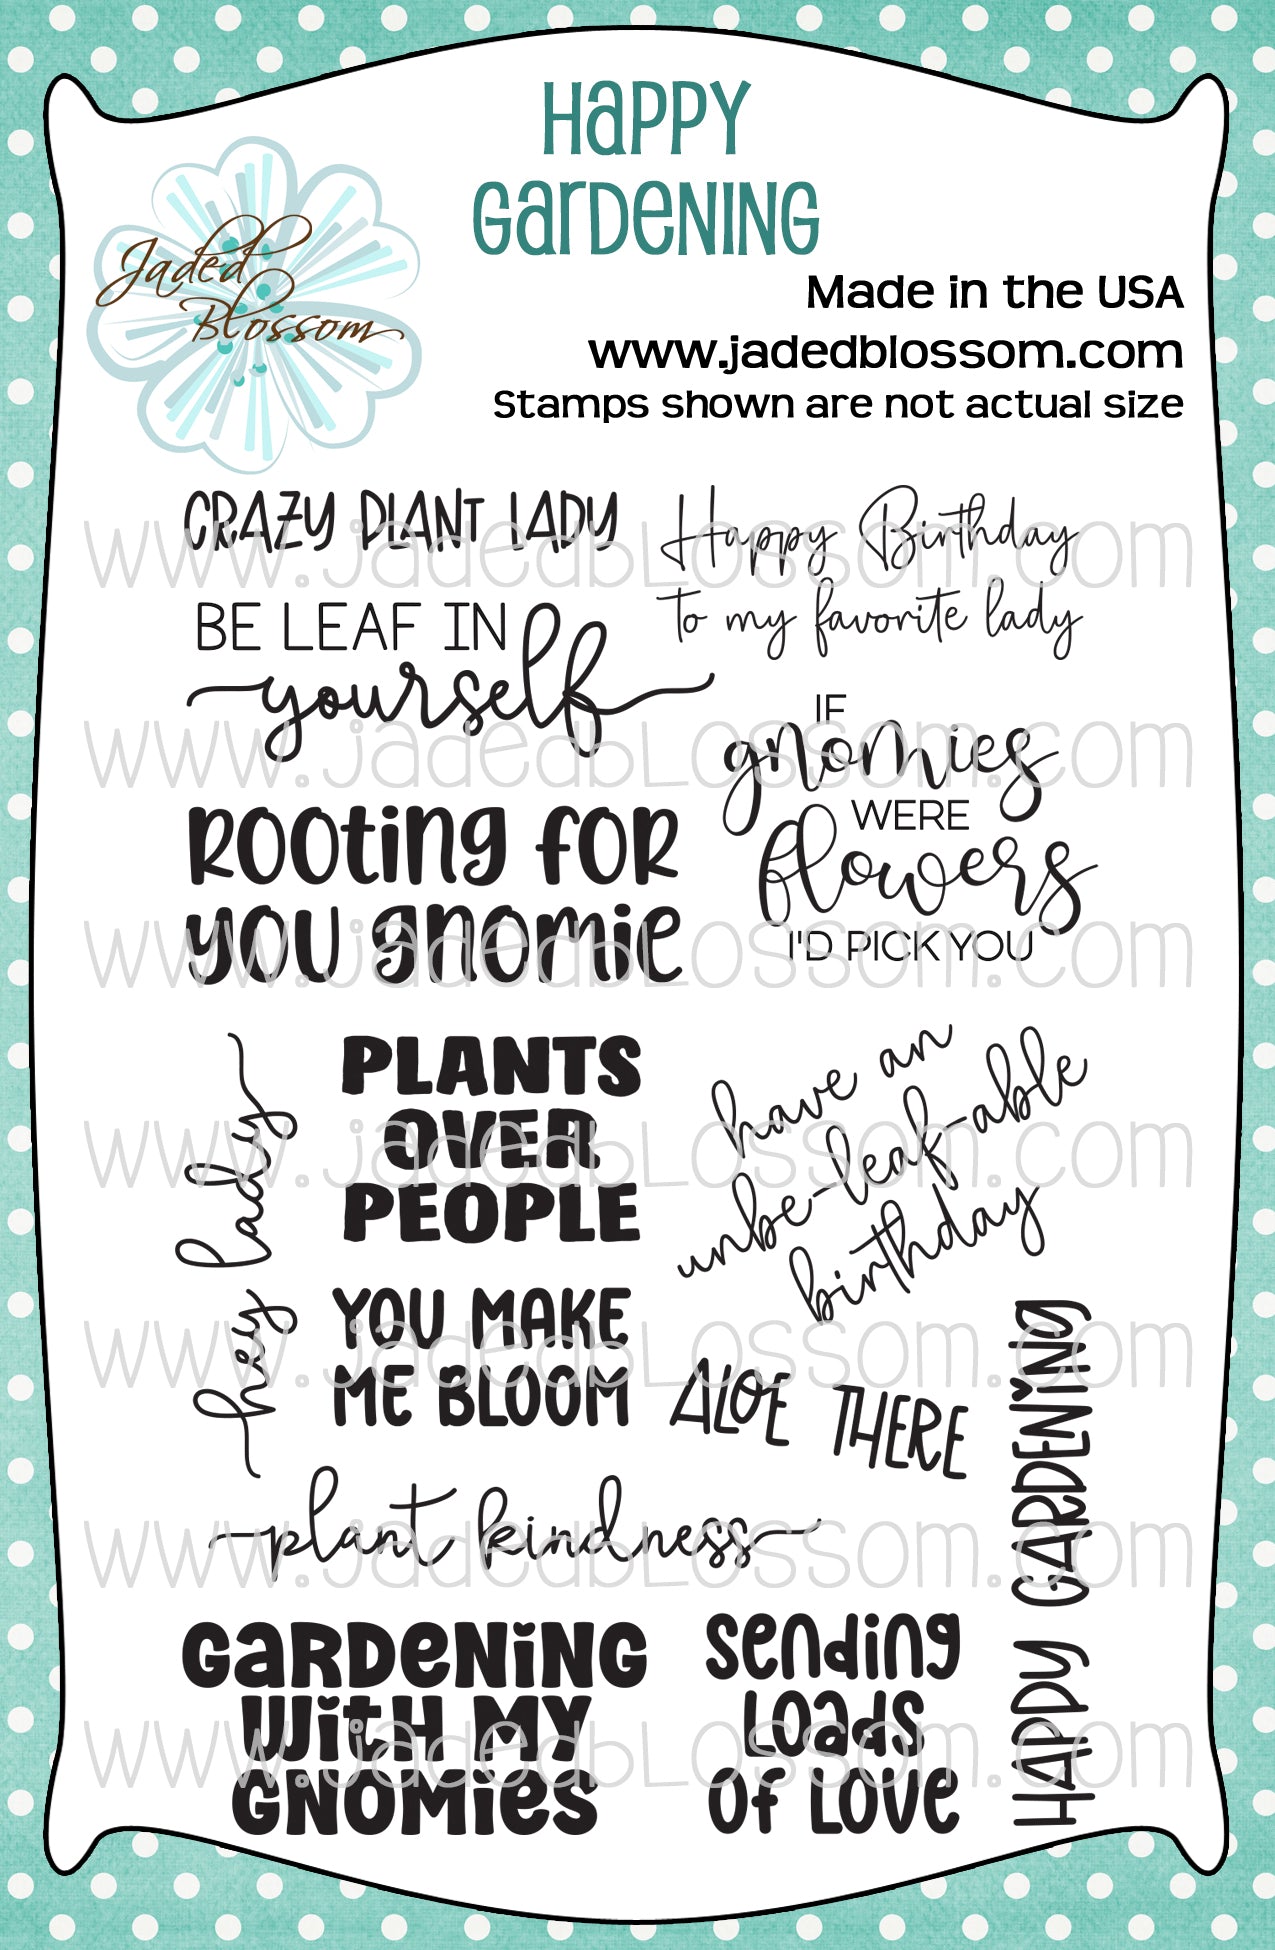 Happy
Gardening
Jaded
Blossom
Made in the USA
www.jadedblossom.com
Stamps shown are not actual size
CRAZY PLANT LADY
Happy Birthday
to my favorite lady
BE LEAF IN
yourself
IF
gnomies
WERE
flowers
I'D PICK YOU
Rooting for
you gnomie
hey lady
PLANTS
OVER
PEOPLE
have an
unbe-leaf-able
birthday
YOU MAKE
ME BLOOM
ALOE THERE
HAPPY GARDENING
plant kindness
Gardening
with my
gnomies
Sending
Loads
of Love
www.jadedblossom.com
www.jadedblossom.com
www.jadedblossom.com
www.jadedblossom.com
www.jadedblossom.com
www.jadedblossom.com
www.jadedblossom.com